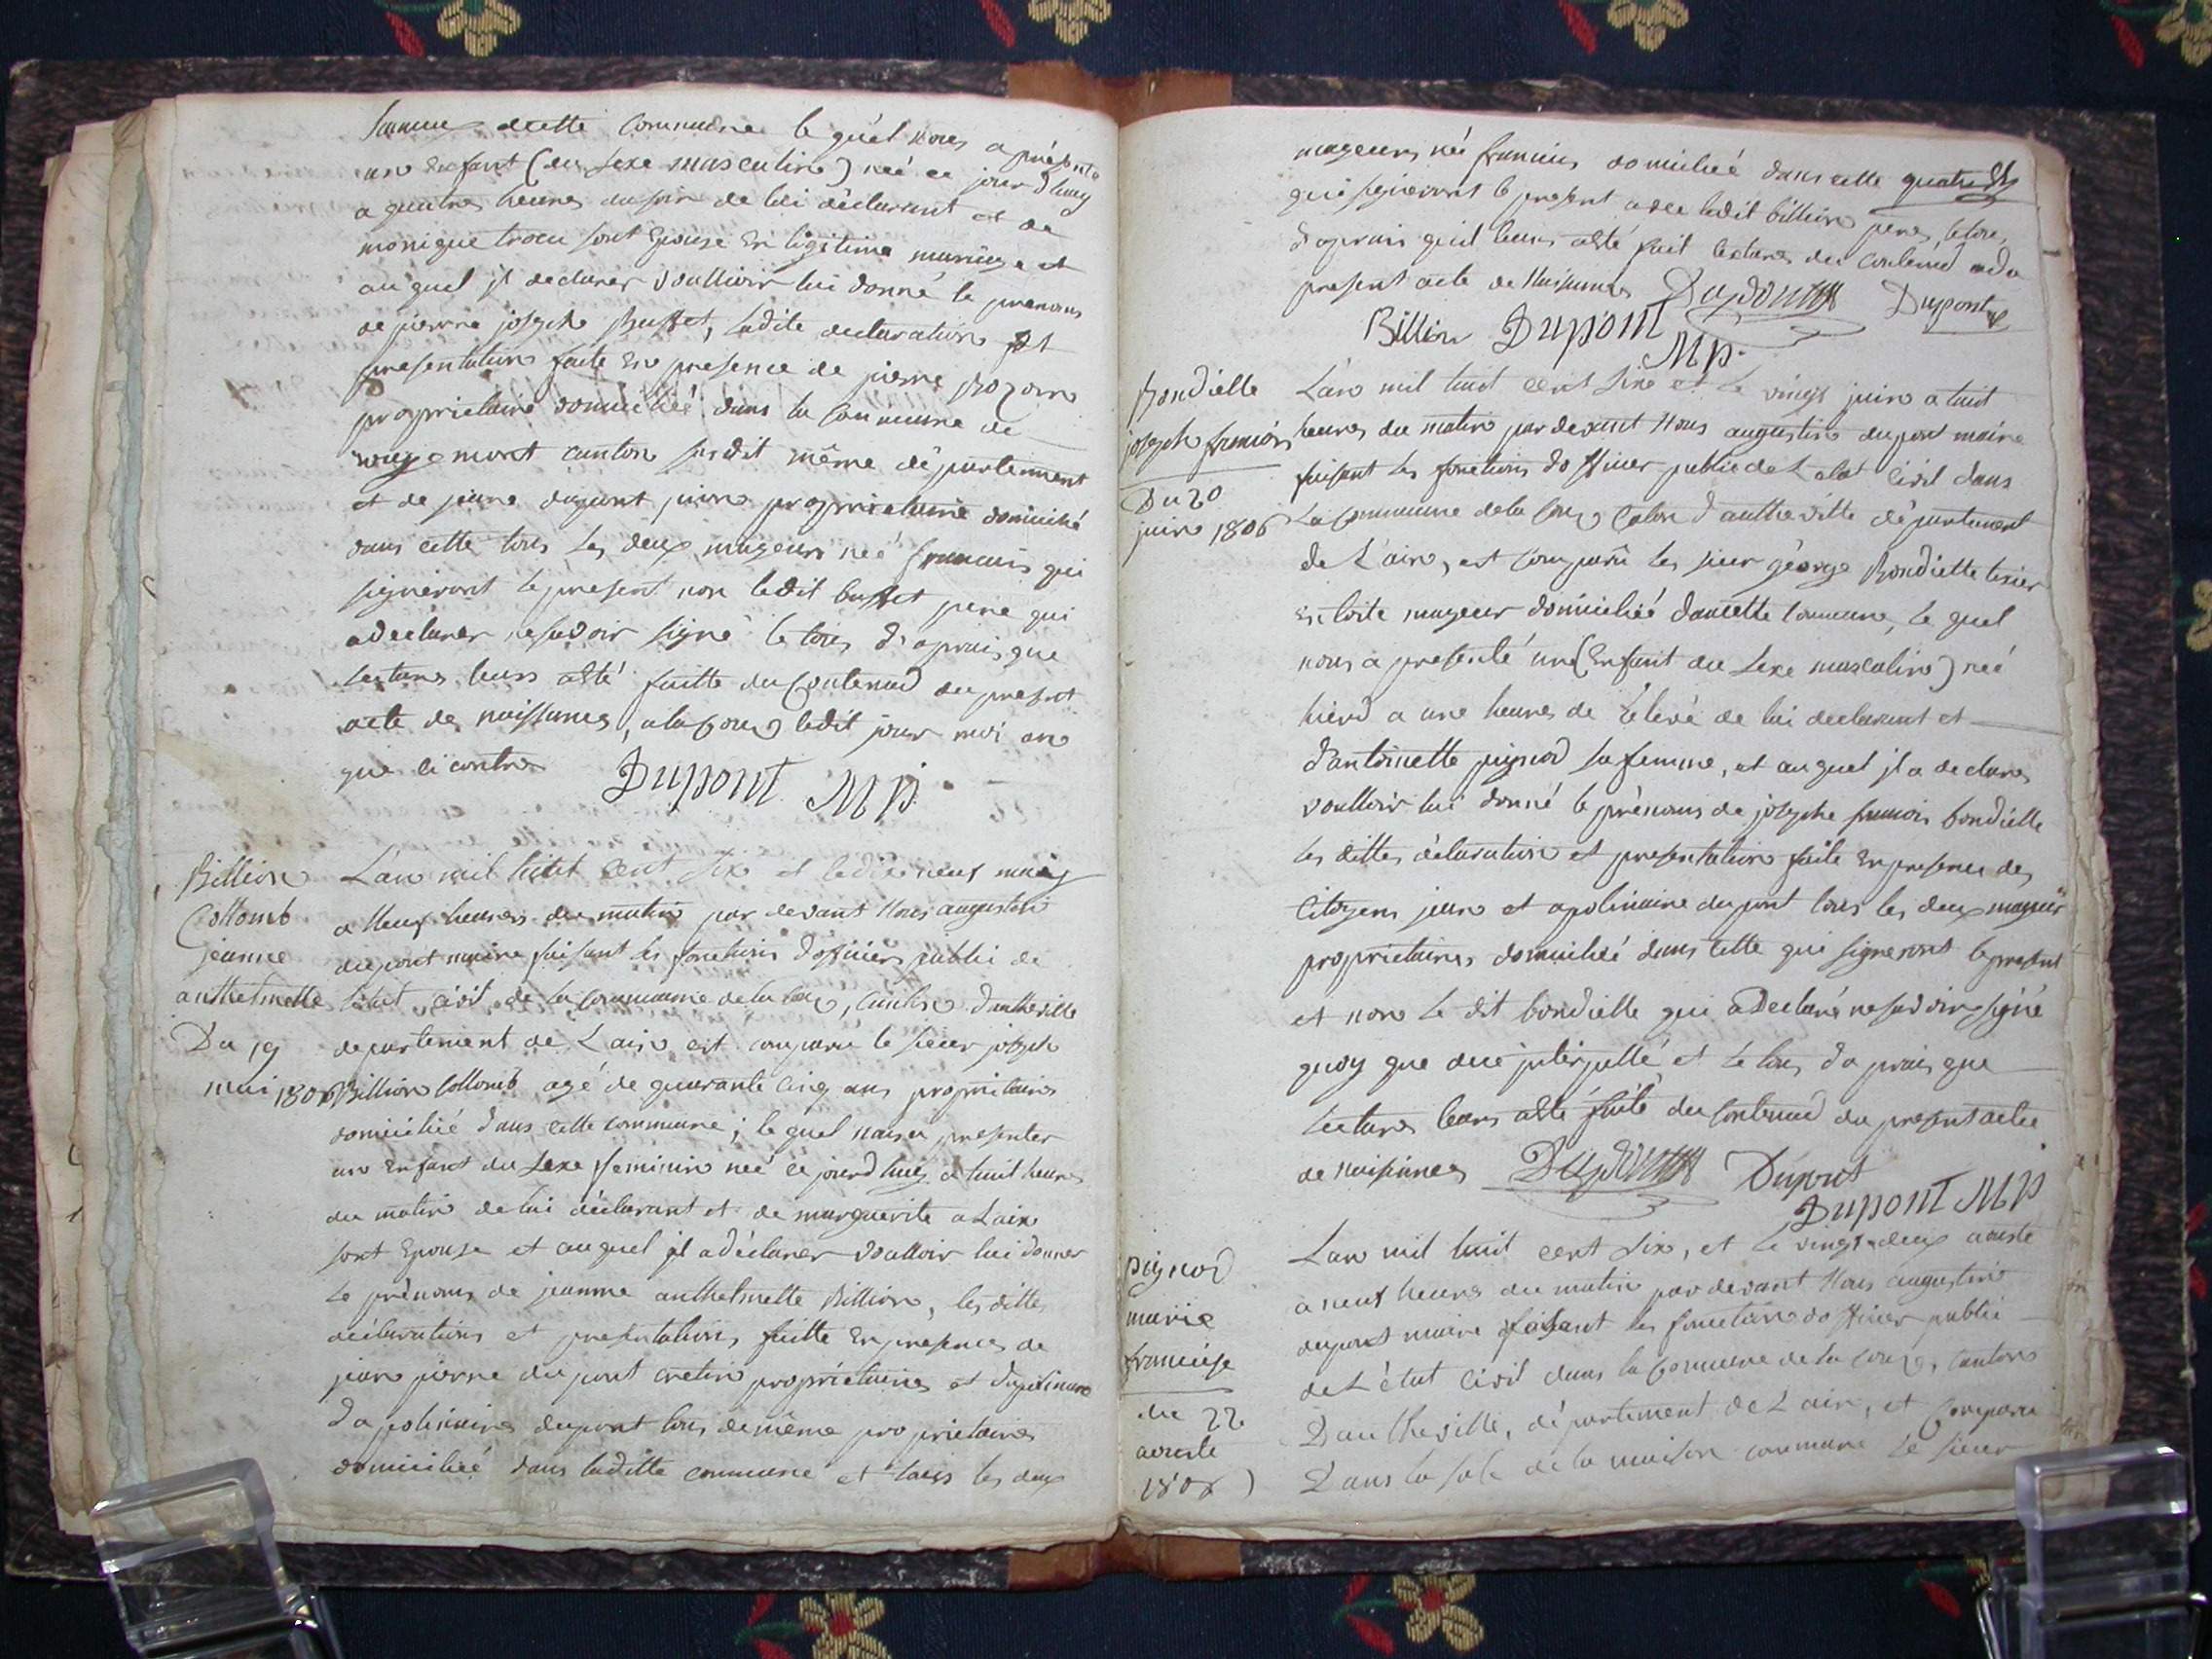 commune decette commune le quel nous a présenté
un enfant (du sexe masculin) neé ce jour dhuy
a quatres heures du soir de lui déclarant et de
monique trocu sont Epouse En légitime mariage et
au quel jl declarer voulloir lui donné le prenoms
de pierre joseph Buffet, ladite declaration Et
presentation faite En presence de pierre Bozonn
proprietaire domicilieé dans la Commune de
rougemont canton susdit même département
et de jeane dupont jeune proprietaire domicilié
dans cette tous les deux mageurs neé francais qui
signeront le present non ledit buffet pere qui
a declarer ne savoir signé le tous d'aprais que
lectures leurs atté faitte du Contenud du present
acte de naissances, a la Coux ledit jour moi an
que ci contres
Dupont MP
Billion
Collomb
jeanne
anthelmette
Du 19
mai 1806
L'an mil huit cent Six et le dix neuf may
a Neuf heures du matin par devant Nous augustin
dupont maire faisant les fonctions d'officiers public de
letat civil de la commune de la Coux, canton d'antheville
departement de L'ain est comparu le sieur joseph
Billion Collomb agé de quarante cinq ans proprietaires
domicilieé dans cette commune; le quel nous a presenter
un Enfant du Sexe feminin neé ce jourd huy a huit heures
du matin de lui déclarant et de marguerite a Laix
sont Epouse et au quel jl a déclarer voulloir lui donner
le prénoms de jeanne anthelmette Billion, les dittes
déclarations et presentations faitte En presences de
jean pierre dupont cretin propriétaires et
d'apolinaire dupont tous de même proprietaires
domicilieé dans laditte commune et tous les deux
mageurs neé francais domicilieé dans cette
qui signeront le present avec ledit billion pere, le tous
d'aprais quil leurs atté fait lectures du contenud du
present acte de Naissances Dupont Dupont
Billion Dupont
MP.
Bondielle
joseph francois
Du 20
juin 1806
L'an mil huit cent Six et le vingt juin a huit
heures du matin par devant Nous augustin dupont maire
faisant les fonctions d'officier public de L'etat Civil dans
La Commune de la Coux Caton d'antheville département
de L'ain, est Comparu les sieur géorge Bondielle tixier
En toile mageur domicilieé dancette Commune, le quel
nous a presenté un (Enfant du Sexe masculin) neé
hierd a une heures de relevé de lui declarant et
d'antoinette pignod sa femme, et au quel jl a declarer
voulloir lui donné le prénoms de joseph francois bondielle
les dittes déclaration et presentation faite En presence des
Citoyens jean et apolinaire dupont tous les deux mageurs
proprietaires domicilieé dans cette qui signeront le present
et non le dit bondielle qui a Declaré ne savoir signé
quoy que due jnterpellé et le tous d'aprais que
lectures leurs atté faite du Contenud du present acte
de naissances Dupont Dupont
Dupont MP
pignod
marie
francoise
du 22
aouste
1806
L'an mil huit cent six, et le vingt deux aouste
a neuf heures du matin par devant Nous augustin
dupont maire faisant les fonctions d'officier public
de L'état Civil dans la Commune de la Coux, Canton
D'antheville, département de L'ain, et Comparu
Dans la sale de la maison commune le sieur